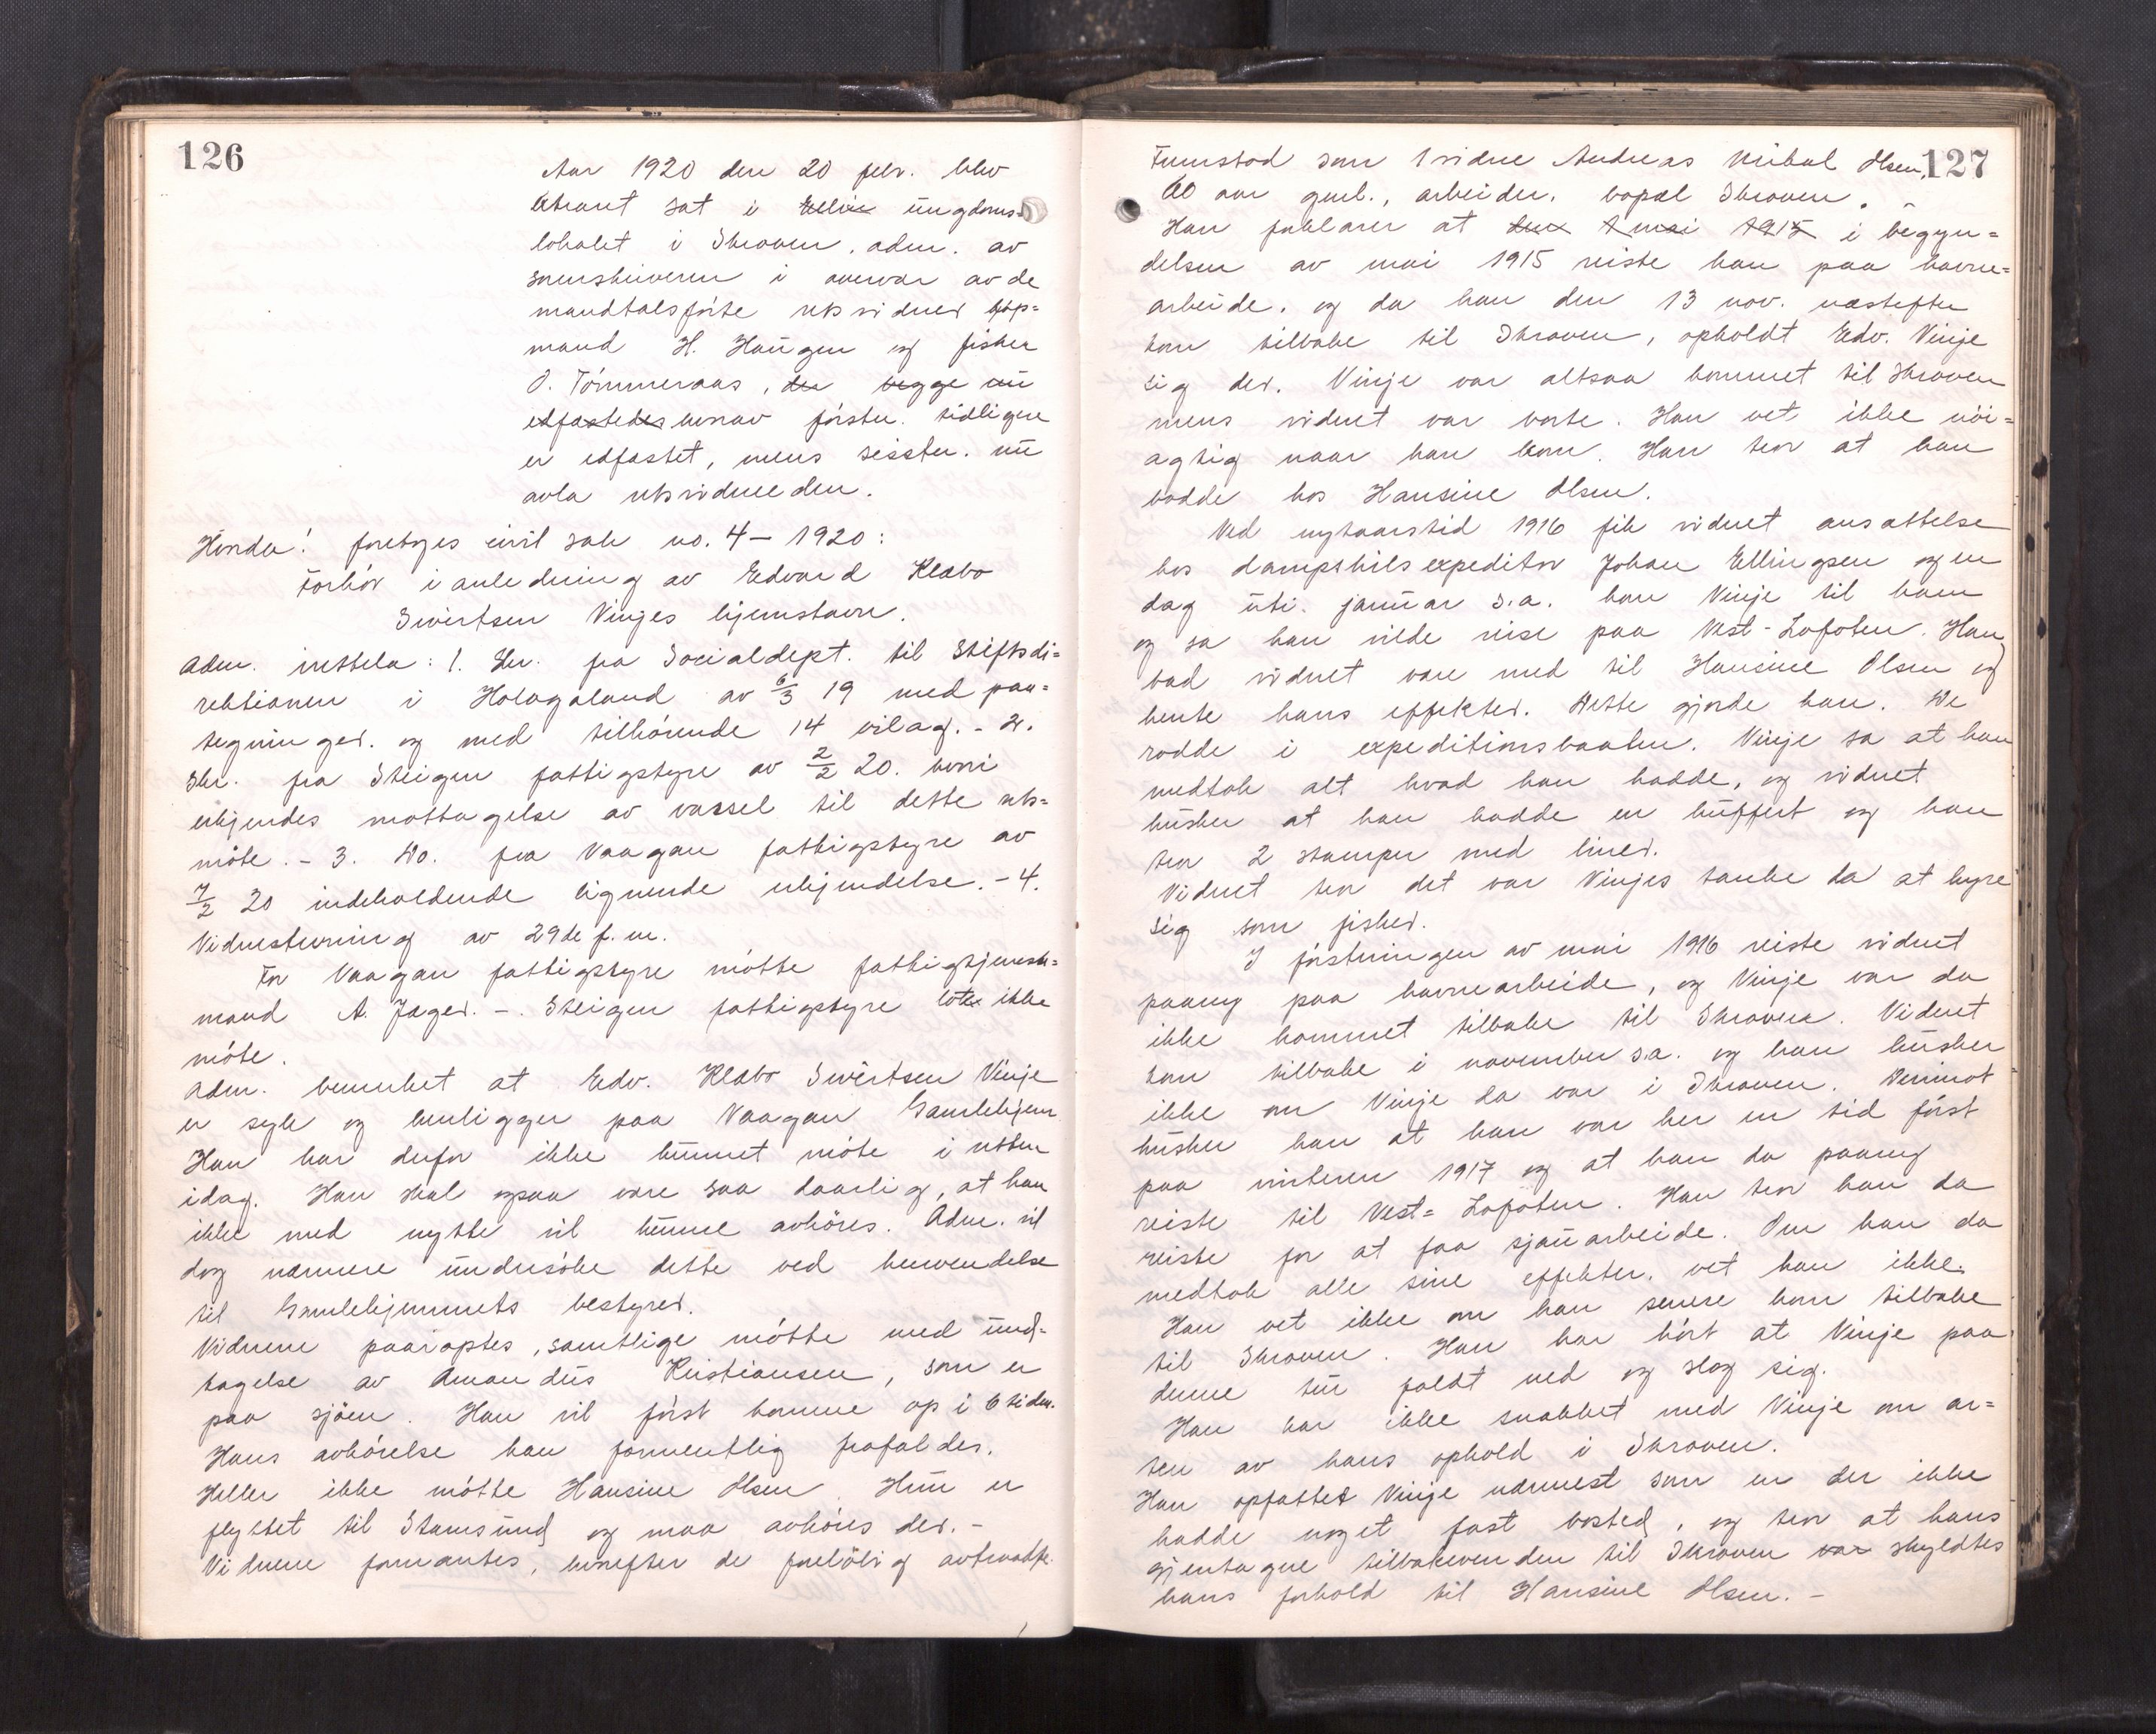 126
Aar 1920 den 20 febr. blev
ekstraret sat i ungdoms-
lokalet i Skroven, adm. av
sorenskriveren i overvær av de
mandtalsførte retsvidner kjøp=
mand H. Haugen og fisker
O. Tømmeraas, der begge nu
edfastedes hvorav første tidligere
er edfæstet, mens sisstn. nu
avla retsvidneeden.
Hvorda! foretoges civil sak no. 4 - 1920:
Forhør i anledning av Edvard Klæbo
Sivertsen Vinjes hjemstavn.
Adm. irettela: 1. Skr. fra Socialdept. til Stiftsdi=
rektionen i Holagaland av 6/3 19 med paa=
tegninger. og med tilhørende 14 bilag. - 2.
Skr. fra Steigen fattigstyre av 2/2 20. hvori
erkjendes mottagelse av varsel til dette rets=
møte. - 3. Do. fra Vaagan fattigstyre av
7/2 20 indeholdende lignende erkjendelse. - 4.
Vidnestevning av 29de f. m.
For Vaagan fattigstyre møtte fattigkjennsk=
mand A. Jæger. -. Steigen fattigstyre lot ikke
møte.
Adm. bemerket at Edv. Klæbo Sivertsen Vinje
er syk og henligger paa Vaagan Gamlehjem
Han har derfor ikke kunnet møte i retten
idag. Han skal ogsaa være saa daarlig, at han
ikke med nytte vil kunne avhøres. Adm. vil
dog nærmere undersøke dette ved henvendelse
til Gamlehjemmets bestyrer.
Vidnene paaroptes, samtlige møtte med und=
tagelse av Amandus Kristiansen, som er
paa sjøen. Han vil først komme op i 6 tiden.
Hans avhørelse kan formentlig frafaldes.
Heller ikke møtte Hansine Olsen. Hun er
flyttet til Stamsund og maa avhøres der. -
Vidnene formantes, hvorefter de foreløbig avtraadte.
127
Fremstod som 1 vidne Andreas Mikal Olsen,
60 aar gml., arbeider, bopæl Skroven.
Han forklarer at den 1 mai 1915 i begyn=
delsen av mai 1915 reiste han paa havne=
arbeide, og da han den 13 nov. næstefter
kom tilbake til Skroven, opholdt Edv. Vinje
sig der. Vinje var altsaa kommet til Skroven
mens vidnet var borte. Han vet ikke nøi=
agtig naar han kom. Han tror at han
bodde hos Hansine Olsen.
Ved nytaarstid 1916 fik vidnet ansættelse
hos dampskibsexpeditør Johan Ellingsen og en
dag uti januar s.a. kom Vinje til ham
og sa han vilde reise paa Vest-Lofoten. Han
bad vidnet være med til Hansine Olsen og
hente hans effekter. Dette gjorde han. De
rodde i expeditionsbaaten. Vinje sa at han
medtok alt hvad han hadde, og vidnet
husker at han hadde en kuffert og han
tror 2 stamper med liner.
Vidnet tror det var Vinjes tanke da at hyre
sig som fisker.
I førstningen av mai 1916 reiste vidnet
paany paa havnearbeide, og Vinje var da
ikke kommet tilbake til Skroven. Vidnet
kom tilbake i november s.a. og han husker
ikke om Vinje da var i Skroven. Derimot
husker han at han var her en tid først
paa vinteren 1917 og at han da paany
reiste til Vest=Lofoten. Han tror han da
reiste for at faa sjauarbeide. Om han da
medtok alle sine effekter, vet han ikke.
Han vet ikke om han senere kom tilbake
til Skroven. Han har hørt at Vinje paa
denne tur faldt ned og slog sig.
Han har ikke snakket med Vinje om ar=
ten av hans ophold i Skroven.
Han opfattet Vinje nærmest som en der ikke
hadde noget fast bosted, og tror at hans
gjentagne tilbakevenden til Skroven var skyldtes
hans forhold til Hansine Olsen. -